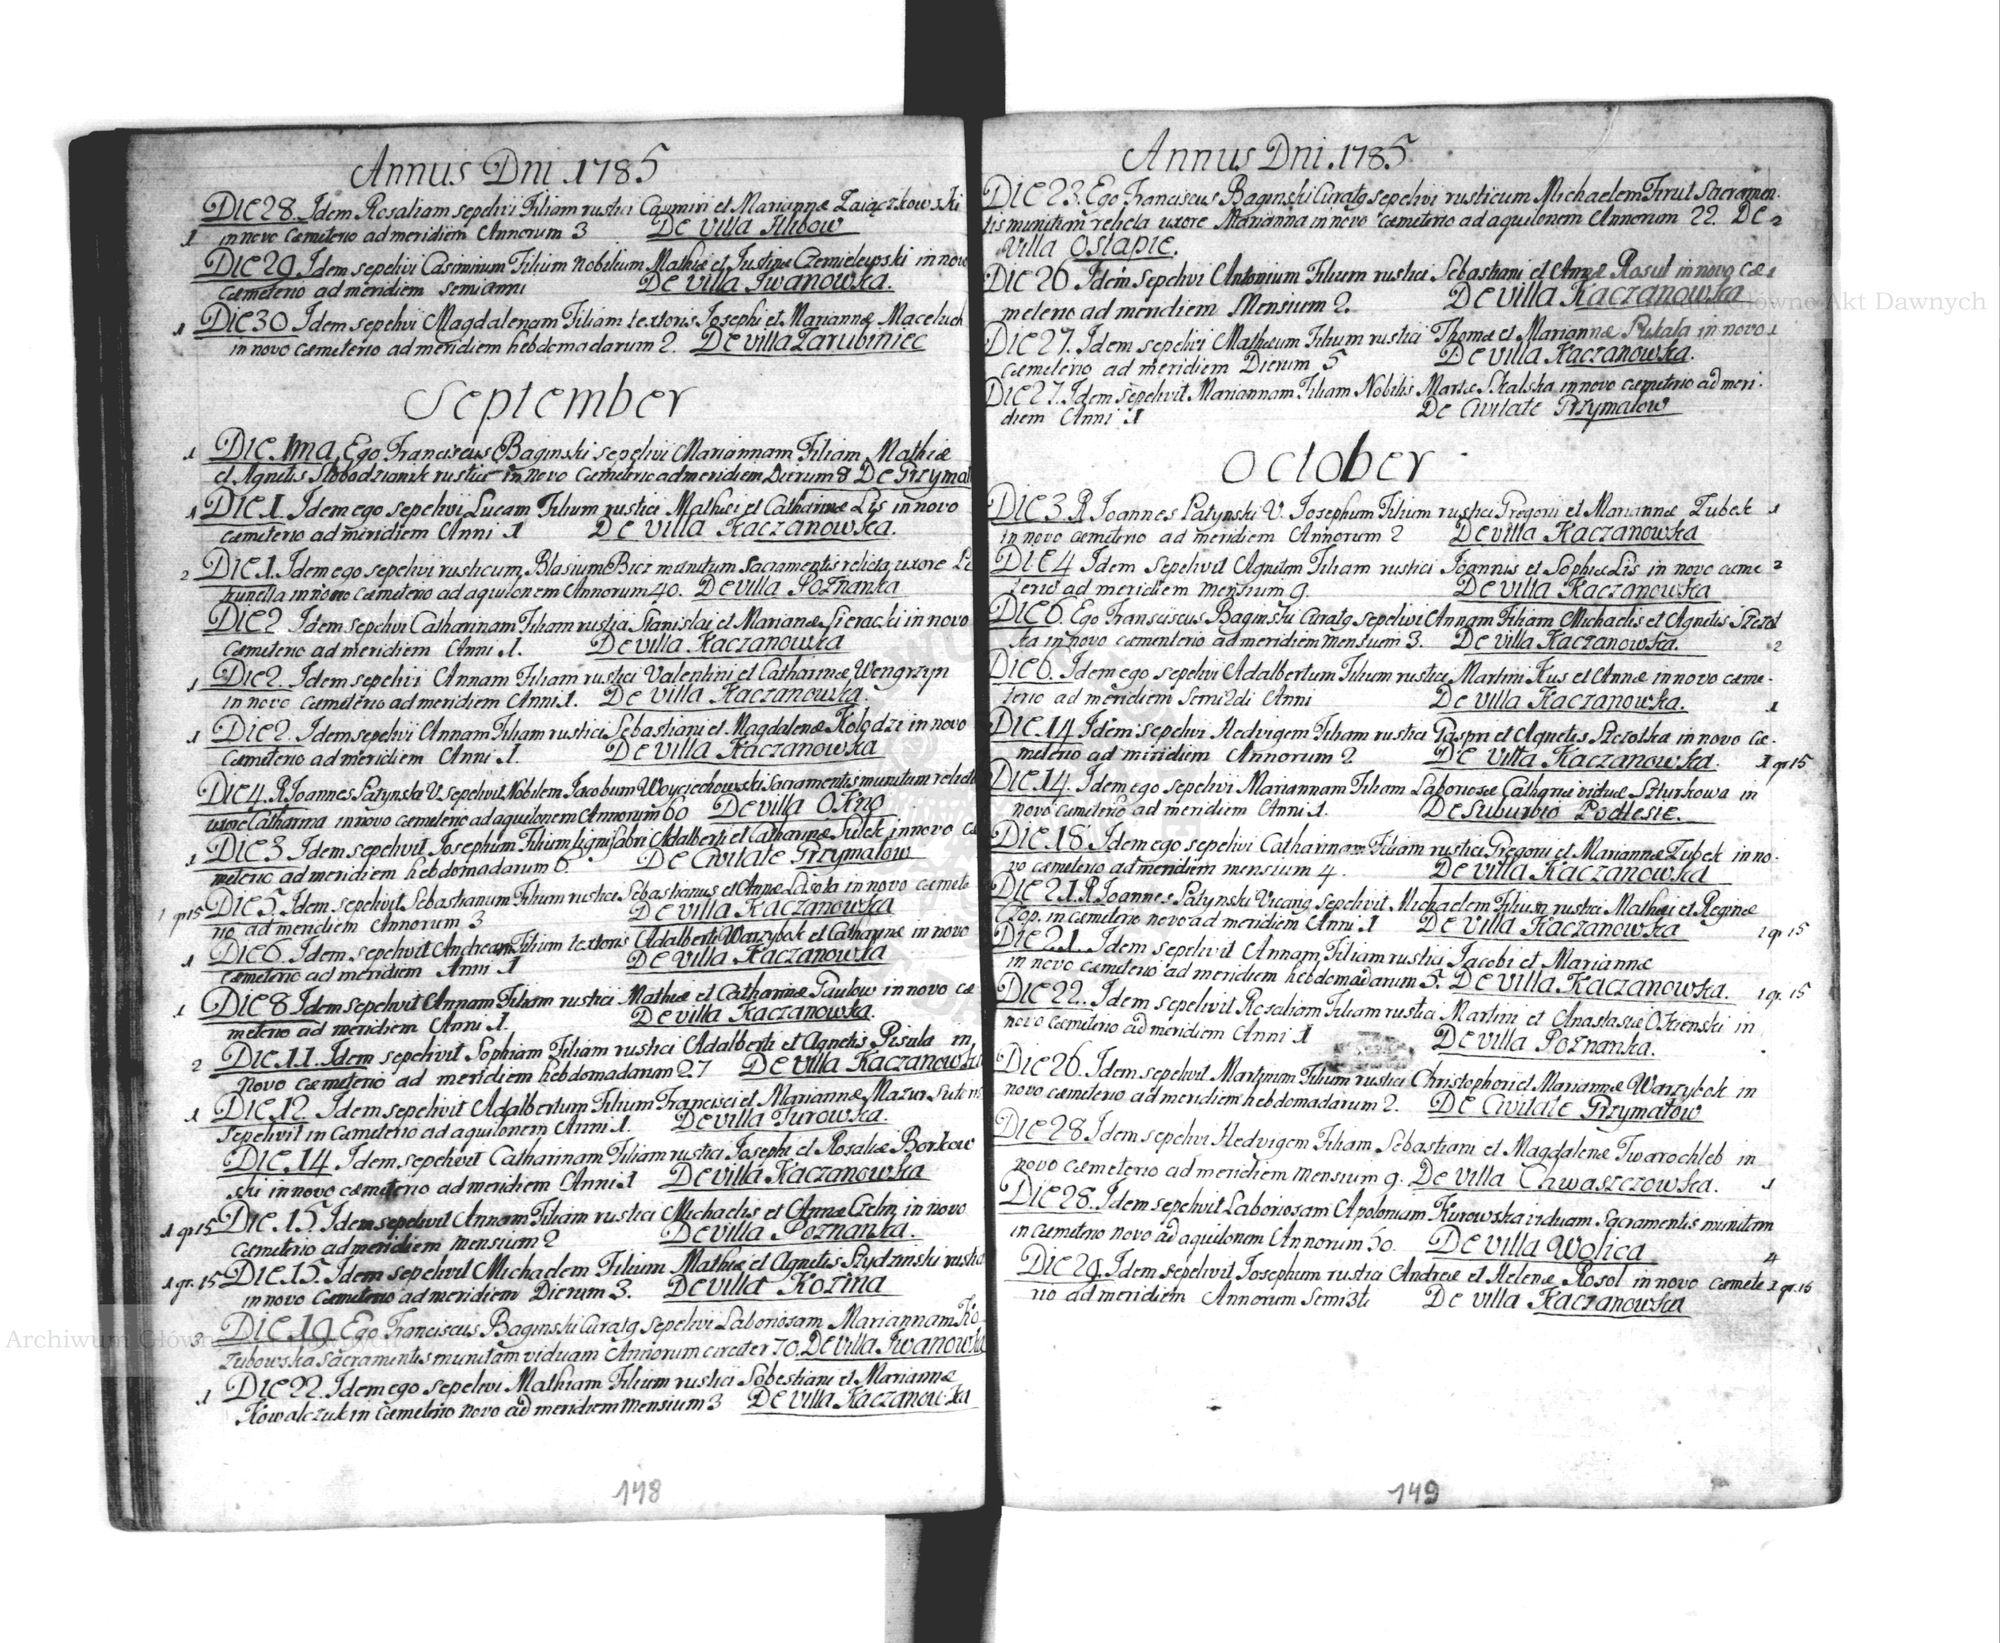 Annus Dni 1785
Die 28. Idem Rosaliam sepelivi Filiam rustici Casmiri et Mariannæ Zaiączkowski
1 in novo Cæmeterio ad meridiem Annorum 3 De villa Hlibow
Die 29. Idem sepelivi Casimirum Filium Nobilium Mathiæ et Justinæ in novo
Cæmeterio ad meridiem semianni De villa Iwanowka.
1 Die 30 Idem sepelivi Magdalenam Filiam textoris Josephi et Mariannæ
in novo cæmeterio ad meridiem hebdomadarum 2. De villa Zarubiniec
September
1 Die 1ma Ego Franciscus Baginski sepelivi Mariannam Filiam Mathiæ
et Agnetis Slobodzianik rustici in novo Cæmeterio ad meridiem Dierum 8 De Grzymal
1 Die 1. Idem ego sepelivi Lucam Filium rustici Mathæi et Catharinæ Lis in novo
cæmeterio ad meridiem Anni 1 De villa Kaczanowka.
2 Die 1. Idem ego sepelivi rusticum Blasium Bicz munitum sacramentis relicta uxore
in novo cæmeterio ad aquilonem Annorum 40. De villa Poznanka
Die 2 Idem sepelivi Catharinam Filiam rustici Stanislai et Marianæ Sieracki in novo
Cæmeterio ad meridiem Anni 1. De villa Kaczanowka
1 Die 2. Idem sepelivi Annam Filiam rustici Valentini et Catharinæ Wengrzyn
in novo Cæmeterio ad meridiem Anni 1. De villa Kaczanowka.
1 Die 2. Idem sepelivi Annam Filiam rustici Sebastiani et Magdalenæ Kolodzi in novo
Cæmeterio ad meridiem Anni 1. De villa Kaczanowka
Die 4. R Joannes Patynski V. sepelivit Nobilem Jacobum Woyciechowski Sacramentis munitum relicta
uxore Catharina in novo cæmeterio ad aquilonem Annorum 60 De villa Okno
1 Die 3 Idem sepelivit Josephum Filium lignifabri Adalberti et Catharinæ Sulek in novo cæ
meterio ad meridiem hebdomadarum 6. De Civitate Grzymalow
1 gr 15 Die 5. Idem sepelivit Sebastianum Filium rustici Sebastianus et Annæ Lasota in novo cæmete
rio ad meridiem Annorum 3 De villa Kaczanowka
1 Die 6. Idem sepelivit Andream Filium textoris Adalberti Warzybok et Catharinæ in novo
cæmeterio ad meridiem Anni 1 De villa Kaczanowka
1 Die 8 Idem sepelivit Annam Filiam rustici Mathiæ et Catharinæ Paulow in novo cæ
meterio ad meridiem Anni 1. De villa Kaczanowka.
2 Die 11. Idem sepelivit Sophiam Filiam rustici Adalberti et Agnetis Pisula in
novo cæmeterio ad meridiem hebdomadarum 2.7 De villa Kaczanowka
1 Die 12. Idem sepelivit Adalbertum Filium Francisci et Mariannæ Mazur
Sepelivit in Cæmeterio ad aquilonem Anni 1. De villa Turowka.
Die 14 Idem sepelivit Catharinam Filiam rustici Josephi et Rosaliæ Borkow
ski in novo cæmeterio ad meridiem Anni 1 De villa Kaczanowka
1 gr 15 Die 15. Idem sepelivit Annam Filiam rustici Michaelis et Annæ in novo
Cæmeterio ad meridiem mensium 2 De villa Poznanka.
1 gr. 15 Die 15. Idem sepelivit Michaelem Filium Mathiæ et Agnetis Szydzinski rustici
in novo Cæmeterio ad meridiem Dierum 3. De villa Kozina
3 Die 19 Ego Franciscus Baginski Curatg sepelivi Laboriosam Mariannam Ko
zubowska sacramentis munitam viduam Annorum circiter 70. De villa Iwanowka
1 Die 22. Idem ego sepelivi Mathiam Filium rustici Sobestiani et Mariannæ
Kowalczuk in Cæmeterio novo ad meridiem mensium 3 De villa Kaczanowka
148
Annus Dni. 1785
Die 23. Ego Franciscus Baginski Curatg sepelivi rusticum Michaelem Firut Sacramen
tis munitum relicta uxore Marianna in novo cæmeterio ad aquilonem Annorum 22. De 2
villa Ostapie.
Die 26. Idem sepelivi Antonium Filium rustici Sebastiani et Annæ Rosul in novo Cæ 1
meterio ad meridiem Mensium 2. De villa Kaczanowka
Die 27. Idem sepelivi Mathæum Filium rustici Thomæ et Mariannæ Pukala in novo 1
cæmeterio ad meridiem Dierum 5 De villa Kaczanowka.
Die 27. Idem sepelivit Mariannam Filiam Nobilis Martæ Skalska in novo cæmeterio ad meri.
diem Anni 1 De Civitate Grzymalow
October
Die 3. R Joannes Patynski V. Josephum Filium rustici Gregorii et Mariannæ Zubek 1
in novo cæmeterio ad meridiem Annorum 2 De villa Kaczanowka
Die 4 Idem Sepelivit Agnitam Filiam rustici Joannis et Sophiæ Lis in novo cæme 2
terio ad meridiem mensium 9. De villa Kaczanowka
Die 6. Ego Franciscus Baginski Curatg sepelivi Annam Filiam Michaelis et Agnetis Szczot
ka in novo cæmenterio ad meridiem mensium 3. De villa Kaczanowka. 2
Die 6. Idem ego sepelivi Adalbertum Filium rustici Martini Kus et Annæ in novo cæme-
terio ad meridiem semi2di Anni De villa Kaczanowka. 1
Die 14 Idem sepelivi Hedvigem Filiam rustici Gaspri et Agnetis Szczotka in novo cæ-
meterio ad meridiem Annorum 2 De Villa Kaczanowka. 1 gr 15
Die 14. Idem ego sepelivi Mariannam Filiam Laboriosæ Catharinæ viduæ Szturkowa in
novo cæmeterio ad meridiem Anni 1. De suburbio Podlesie.
Die 18. Idem ego sepelivi Catharinam Filiam rustici Gregorii et Mariannæ Zubek in no-
vo cæmeterio ad meridiem mensium 4. De villa Kaczanowka
Die 21. R Joannes Patynski Vicarig Sepelivit Michaelem Filium rustici Mathæi et Reginæ
Czop. in cæmeterio novo ad meridiem Anni 1 De villa Kaczanowka 1 gr 15
Die 21. Idem sepelivit Annam Filiam rustici Jacobi et Mariannæ
in novo cæmeterio ad meridiem hebdomadarum 5. De villa Kaczanowka. 1 gr. 15
Die 22. Idem sepelivit Rosaliam Filiam rustici Martini et Anastasiæ Okrenski in
novo cæmeterio ad meridiem Anni 1 De villa Poznanka.
Die 26. Idem sepelivit Martinum Filium rustici Christophori et Mariannæ Warzybok in
novo cæmeterio ad meridiem hebdomadarum 2. De Civitate Grzymałow
Die 28 Idem sepelivi Hedvigem Filiam Sebastiani et Magdalenæ Twarochleb in
novo cæmeterio ad meridiem mensium 9. De villa Chwaszczowka. 1
Die 28. Idem sepelivit Laboriosam Apoloniam Kurowska viduam Sacramentis munitam
in cæmeterio novo ad aquilonem Annorum 50. De villa Wolica 4
Die 29. Idem sepelivit Josephum rustici Andreæ et Helenæ Rosol in novo cæmete 1 gr. 15
rio ad meridiem Annorum semi3tii De villa Kaczanowka
149
Archiwum Główne Akt Dawnych